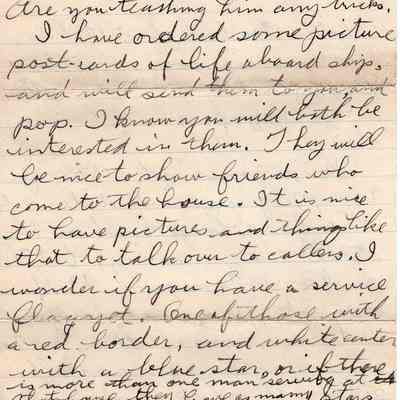 Are you teaching him any tricks.
I have ordered some picture
post-cards of life aboard ship.
and will send them to you and
pop. I know you will both be
interested in them. They will
be nice to show friends who
come to the house. It is nice
to have pictures and things like
that to talk over to callers. I
wonder if you have a service
flag yet. One of those with
a red border, and white center
with a blue star, or if there
is more than one man serving at
they have as many stars